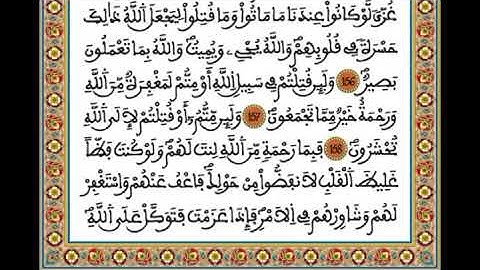 غُزّىً لَّوْ كَانُواْ عِندَنَا مَا مَاتُواْ وَمَا قُتِلُواْ لِيَجْعَلَ اَللَّهُ ذَٰلِكَ
حَسْرَةً فِي قُلُوبِهِمْ وَاللَّهُ يُحْيِۦ وَيُمِيتُ وَاللَّهُ بِمَا تَعْمَلُونَ
بَصِيرٌ 156 وَلَئِن قُتِلْتُمْ فِي سَبِيلِ اِللَّهِ أَوْ مِتُّمْ لَمَغْفِرَةٌ مِّنَ اَللَّهِ
وَرَحْمَةٌ خَيْرٌ مِّمَّا تَجْمَعُونَ 157 وَلَئِن مِّتُّمْ أَوْ قُتِلْتُمْ لَإِلَى اَللَّهِ
تُحْشَرُونَ 158 فَبِمَا رَحْمَةٍ مِّنَ اَللَّهِ لِنتَ لَهُمْ وَلَوْ كُنتَ فَظّاً
غَلِيظَ اَلْقَلْبِ لَانفَضُّواْ مِنْ حَوْلِكَ فَاعْفُ عَنْهُمْ وَاسْتَغْفِرْ
لَهُمْ وَشَاوِرْهُمْ فِي اِلَامْرِ فَإِذَا عَزَمْتَ فَتَوَكَّلْ عَلَى اَللَّهِ